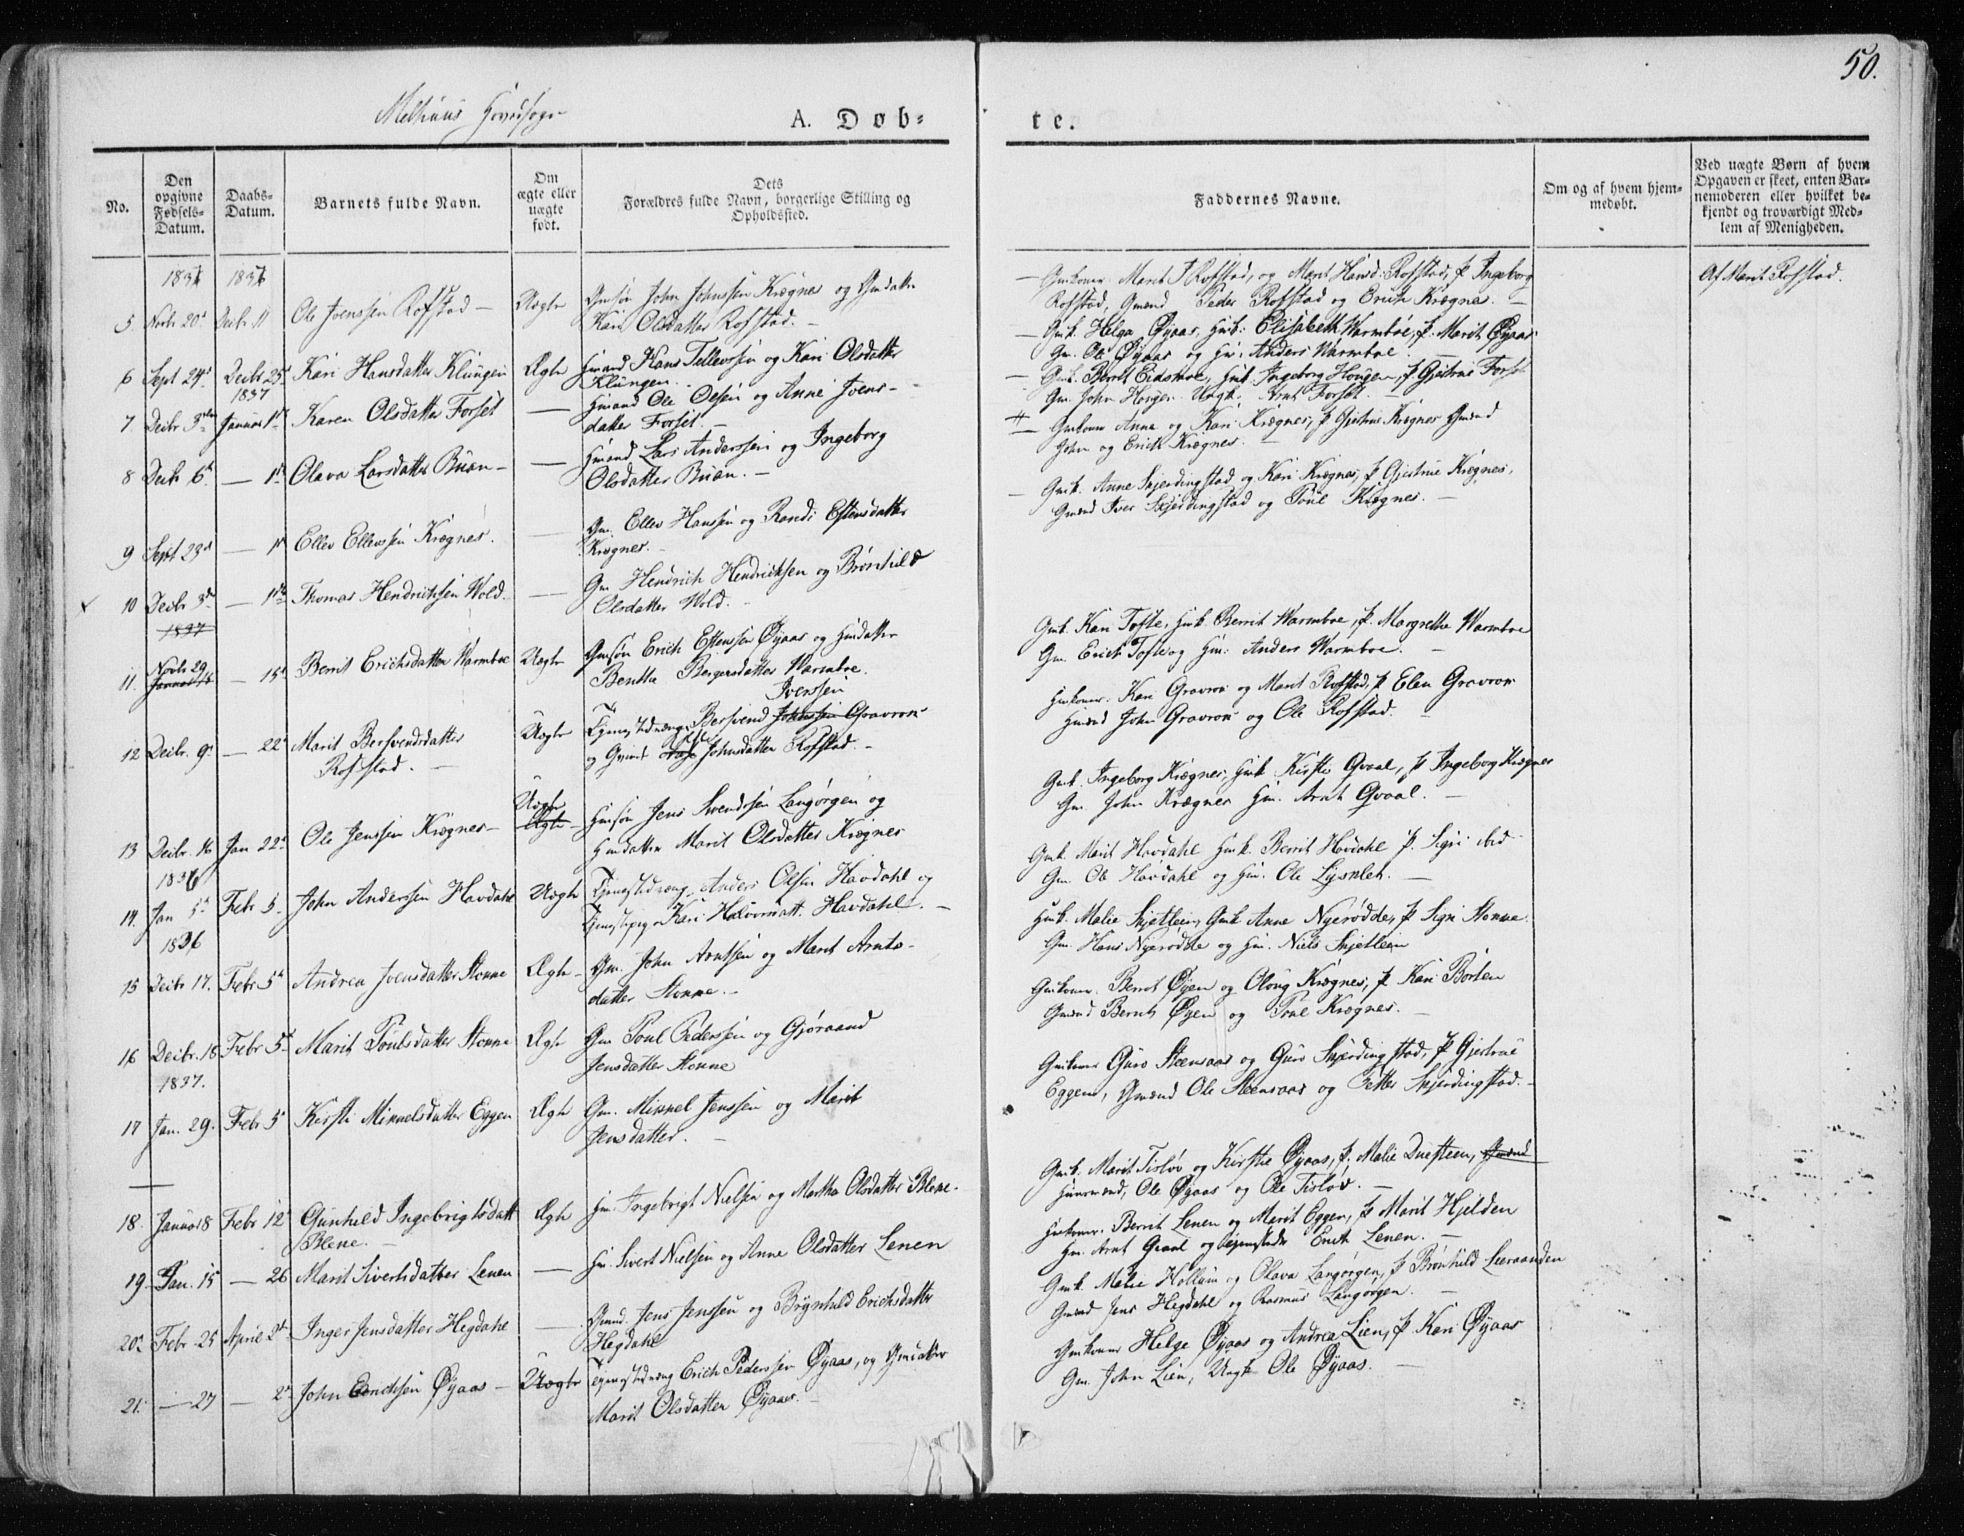 50.
Melhuus Hovedsogn
A. Døb-
te.
No.
Den opgivne Fødsels-Datum.
Daabs-Datum.
Barnets fulde Navn.
Om ægte eller uægte født.
Dets Forældres fulde Navn, borgerlige Stilling og Opholdsted.
Faddernes Navne.
Om og af hvem hjem-medøbt.
Ved uægte Børn af hvem Opgaven er skeet, enten Bar-nemoderen eller hvilket be-kjendt og troværdigt Med-lem af Menigheden.
1836 1836
5 Novbr 20d Decbr 11 Ole Joenssen Rofstad — Uægte Gmsøn John Johnssen Krægnes og Gmdatter
Kari Olsdatter Rofstad. —
— Gmkoner Marit Rofstad, og Marit Hansd: Rofstad, P. Ingeborg
Rofstad, Gmænd Peder Rofstad og Erich Krægnes. —
Af Marit Rofstad.
6 Sept 24d Decbr 25d Kari Hansdatter Klungen Ægte Hmand Hans Tellevssen og Kari Olsdatter
Klungen.
— Gmk. Helga Øyaas, Hmk: Elisabeth Warmboe, P. Marit Øyaas
Gm. Ole Øyaas og Hm: Anders Warmboe.
1837
7 Decbr 3die Januar 1ste Karen Olsdatter Forset — Hmand Ole Olsen og Anne Joens-
datter Forset. —
— Gmk. Berit Eidsmoe, Hmk Ingeborg Hougen, P. Gjertrue Forset
Gm. John Hougen Ungk. Arnt Forset. —
8 Decbr 6d — 1ste Olava Larsdatter Buan — — Hmand Lars Anderssen og Ingeborg
Olsdatter Buan. —
Gmkoner Anne og Kari Krægnes, P Gjertrue Krægnes Gmænd
John og Erich Krægnes. —
9 Sept 23d — 1ste Ellev Ellevssen Krægnes. — Gm. Ellev Hansen og Randi Estensdatter
Krægnes. —
— Gmk. Anne Skjerdingstad og Kari Krægnes, P Gjertrue Krægnes,
Gmænd Iver Skjerdingstad og Poul Krægnes. —
10 Decbr 3die — 1ste Thomas Hendrichsen Wold. — Gm. Hendrich Hendrichsen og Brønhild
Olsdatter Wold. —
1837
11. Novbr 29 Januar — 15d Berrit Erichsdatter Warmboe Uægte Gmsøn Erich Estenssen Øyaas og Hmdatter
Bentha Børgersdatter Warmboe.
Gmk. Kari Tofte, Hmk. Berrit Warmboe, P. Margretha Warmboe
Gm. Erich Tofte og Hm: Anders Warmboe. —
Ivenssen
12 Decbr. 9d — 22d Marit Bersvendsdatter
Rofstad. — Uægte Tjenestedreng Bersvend Johnssen Gravron
og Johnsdatter Rofstad. —
Hmkoner. Kari Gravron og Marit Rofstad, P Elen Gravron
Hmænd John Gravron og Ole Rofstad. —
13 Decbr. 16 Jan 22d Ole Jenssen Krægnes — Uægte Ægte Hmsøn Jens Svendsen Langørgen og
Hmdatter Marit Olsdatter Krægnes
Gmk. Ingeborg Krægnes, Hmk Kirstie Gvaal, P Ingeborg Krægnes
Gm. John Krægnes Hm. Arnt Gvaal. —
1836
14. Jan 5d Febr 5. John Anderssen Havdahl Uægte Tjenestdreng Anders Olsen Havdahl og
Tjenestepige Kari Halvorsdatt. Havdahl. —
Gmk. Marit Havdahl Hmk. Berrit Havdahl P. Sigri ibid
Gm. Ole Havdahl og Hm. Ole Lysklet. —
1836
15 Decbr 17. Febr 5d Andrea Joensdatter Stonne Ægte — Gm. John Arntsen og Marit Arnts-
datter Stonne. —
Hmk. Malie Skjetlein, Gmk Anne Nyerødde, P Sigri Stonne.
Gm. Hans Nyerødde og Hm. Niels Skjetlein
16 Decbr. 18 Febr 5d Marit Poulsdatter Stonne Ægte Gm Poul Pederssen og Gjøraand
Jensdatter Stonne
Gmkoner. Berrit Øyen og Oloug Krægnes, P Kari Borten
Gmænd Bernt Øyen og Poul Krægnes. —
1837.
17 Jan. 29. Febr 5 Kirsti Mikkelsdatter Eggen Ægte Gm. Mikkel Jenssen og Marit
Jensdatter. —
Gmkoner Guro Steensaas og Guro Skjerdingstad, P Gjertrue
Eggen, Gmænd Ole Steensaas og Petter Skjerdingstad. —
18. Januar 8 Febr 12 Gunhild Ingebrigtsdatt
Blene. — Ægte Hm. Ingebrigt Nielsen og Martha Olsdatter Blene.
Gmk. Marit Tisløv og Kirstie Øyaas, P. Malie Duesteen, Gmænd
Huusmænd, Ole Øyaas og Ole Tisløv. —
19. Jan. 15 — 26 Marit Sivertsdatter Lenen — Hm. Sivert Nielsen og Anne Olsdatter Lenen
Hmkoner. Berrit Lenen og Marit Eggen, P Marit Hjelden
Hm. Arnt Gvaal og Erich Lenen. —
20. Febr 25 April 2d Inger Jensdatter Hegdahl — Gmd. Jens Jenssen og Brynhild Erichsdatter
Hegdahl
Gmk. Malie Hollum og Olava Langørgen, P Brønhild Leeraanden
Gmænd Jens Hegdahl og Rasmus Langørgen. —
21. — 27 — 2d John Erichsen Øyaas — Uægte Tjenestedreng Erich Pederssen Øyaas, og Gmdatter
Marit Olsdatter Øyaas. —
Gmkoner Helge Øyaas og Andrea Lien, P. Kari Øyaas
Gm. John Lien, Ungk Ole Øyaas. —